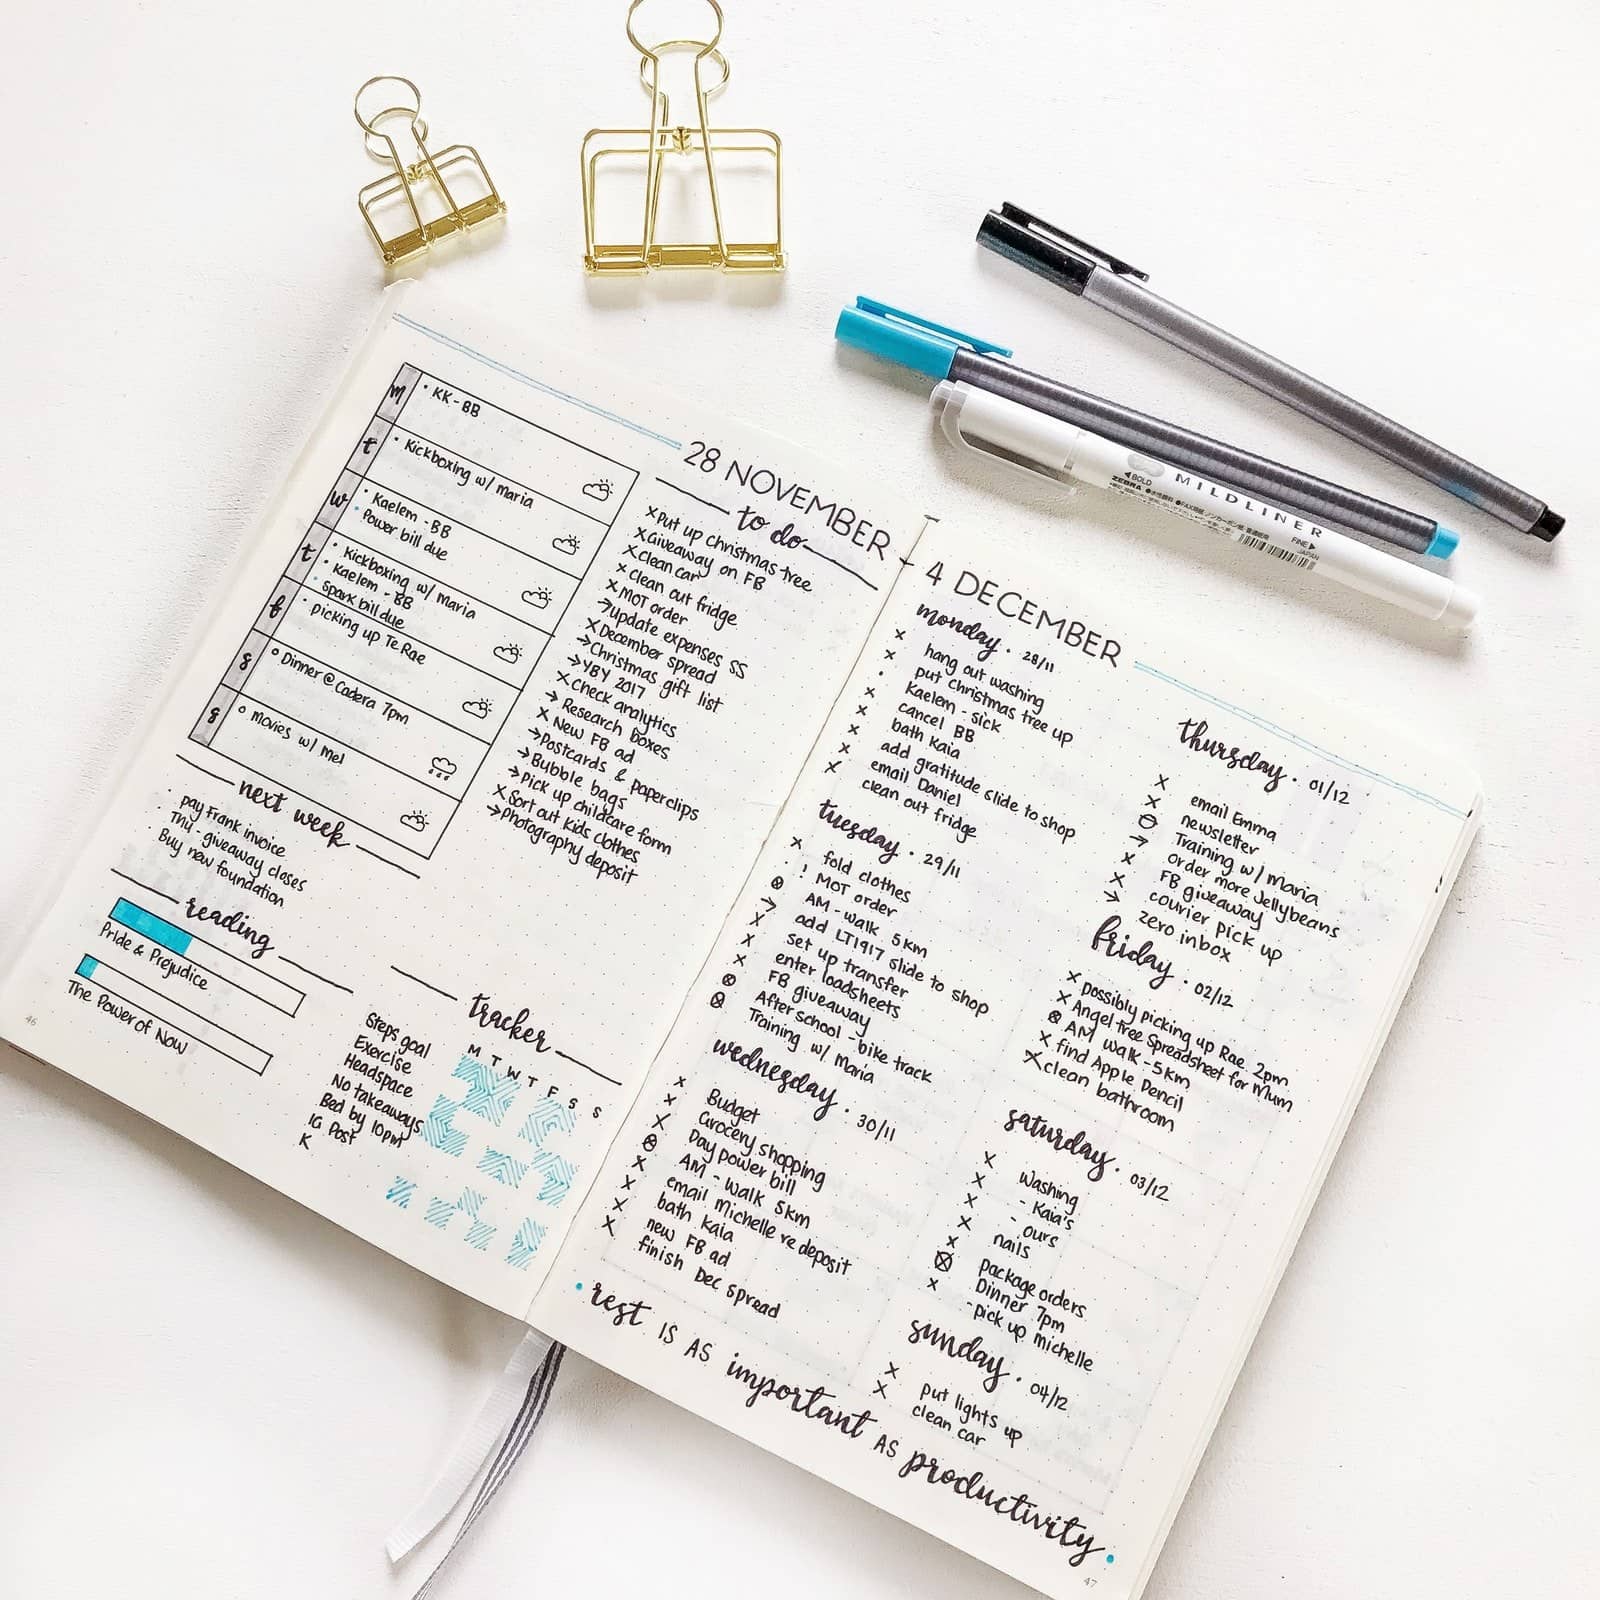 28 NOVEMBER –
m
• KK - BB
t
• Kickboxing w/ Maria
w
• Kaelem - BB
• Power bill due
t
• Kickboxing w/ Maria
• Kaelem - BB
• Spark bill due
f
• picking up Te Rae
s
o Dinner @ Cadera 7pm
s
o movies w/ Mel
to do
x Put up christmas tree
x Giveaway on FB
x Clean car
x Clean out fridge
x MOT order
→ Update expenses SS
x December spread
→ Christmas gift list
→ YBY 2017
x Check analytics
→ Research boxes
x New FB ad
→ Postcards & paperclips
→ Bubble bags
→ Pick up childcare form
x Sort out kids clothes
→ Photography deposit
next week
· pay Frank invoice
· Thu - giveaway closes
· Buy new foundation
reading
Pride & Prejudice
The Power of Now
tracker
M T W T F S S
Steps goal
Exercise
Headspace
No takeaways
Bed by 10pm
IG Post
K
46
4 DECEMBER
monday · 28/11
x hang out washing
x put Christmas tree up
· Kaelem - sick
x cancel BB
x bath Kaia
x add gratitude slide to shop
x email Daniel
x clean out fridge
tuesday · 29/11
x fold clothes
· ! MOT order
⊗ AM - walk 5km
→ add LT1917 slide to shop
x set up transfer
x enter loadsheets
x FB giveaway
⊗ After school - bike track
⊗ Training w/ Maria
wednesday · 30/11
x Budget
x Grocery shopping
x Day power bill
⊗ AM - walk 5km
x email Michelle re deposit
x bath Kaia
x new FB ad
x finish Dec spread
thursday · 01/12
x email Emma
x newsletter
⊖ Training w/ Maria
→ order more Jellybeans
x FB giveaway
x courier pick up
→ zero inbox
friday · 02/12
x possibly picking up Rae 2pm
x Angel tree Spreadsheet for Mum
⊗ AM walk - 5km
x find Apple Pencil
x clean bathroom
saturday · 03/12
x Washing
x - Kaia's
x - ours
x nails
x package orders
⊗ Dinner 7pm
x - pick up Michelle
sunday · 04/12
x put lights up
x clean car
• rest IS AS important AS productivity •
47
◄BOLD
ZEBRA
MILDLINER
FINE►
JAPAN